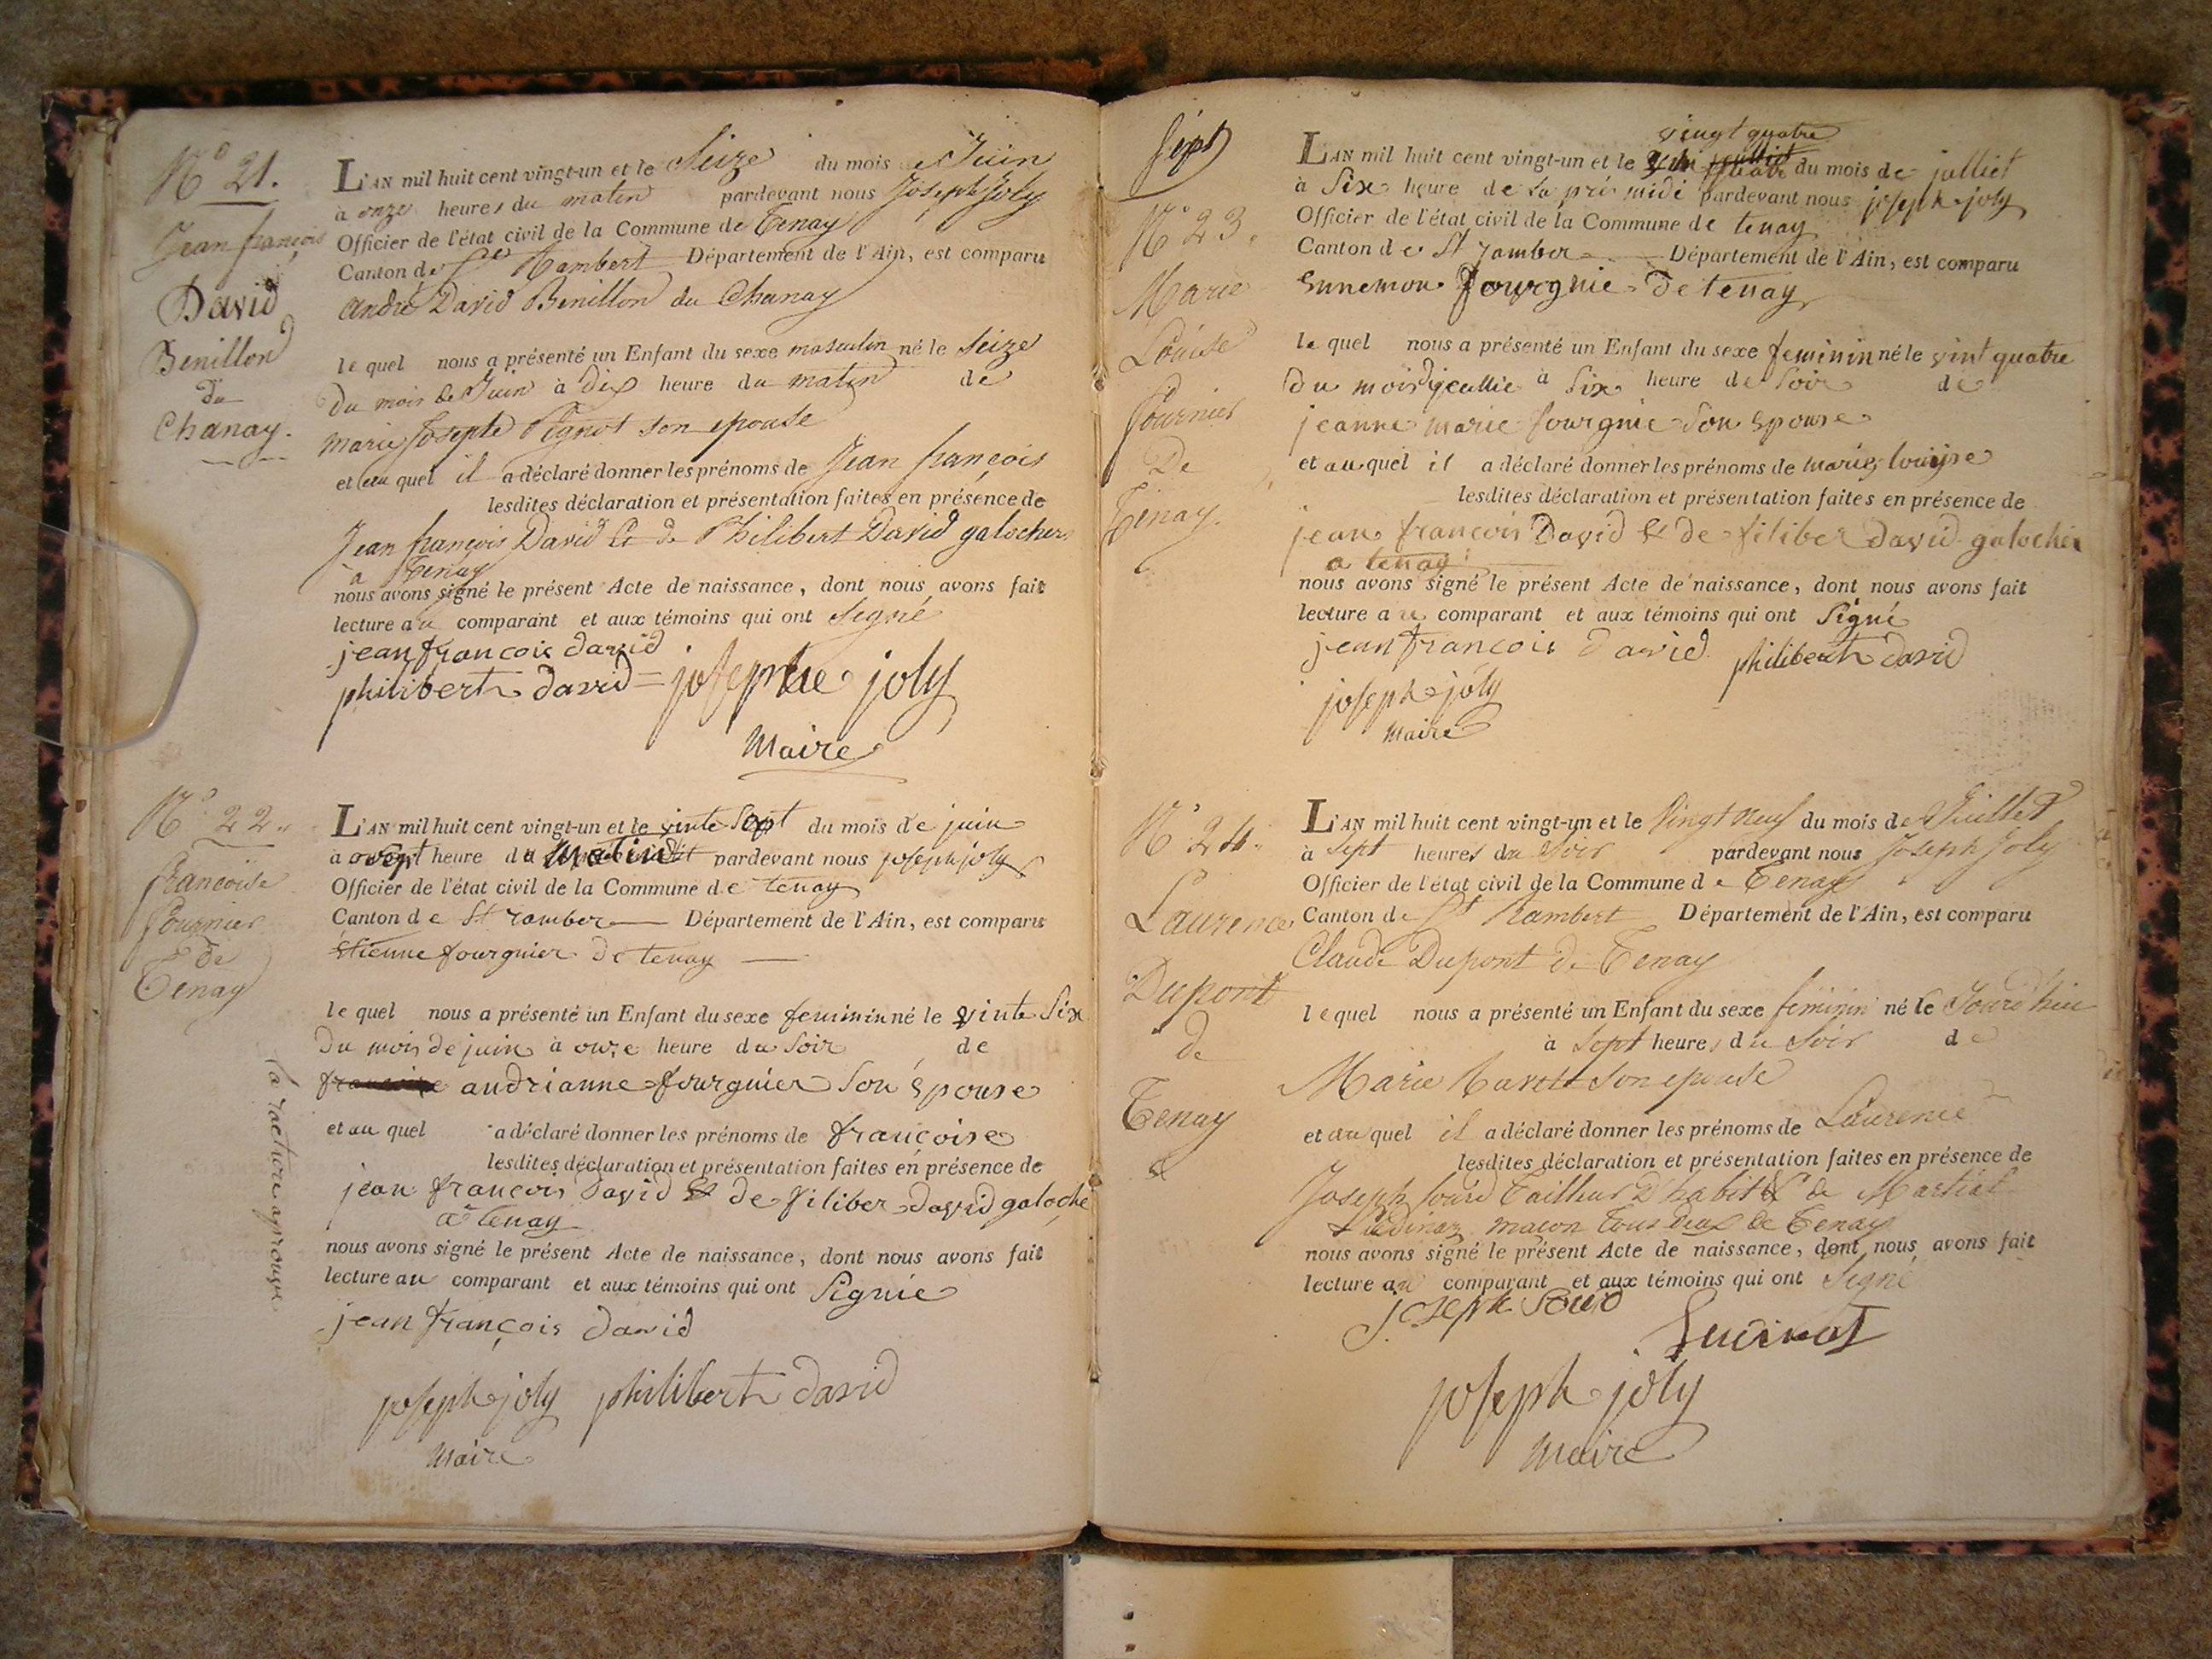 N° 21.
Jean françois
David
Benillon
du
Chanay.
L'AN mil huit cent vingt-un et le Seize du mois de Juin
à onze heures du matin pardevant nous Joseph Joly
Officier de l'état civil de la Commune de Tenay
Canton de St Rambert Département de l'Ain, est comparu
andré David Benillon du Chanay
le quel nous a présenté un Enfant du sexe masculin né le Seize
du mois de Juin à dix heure du matin de
marie Josephe son epouse
et au quel il a déclaré donner les prénoms de Jean françois
lesdites déclaration et présentation faites en présence de
Jean françois David et de Philibert David galochers
a Tenay
nous avons signé le présent Acte de naissance, dont nous avons fait
lecture au comparant et aux témoins qui ont Signé
jean françois david
philiberth david = josephe joly
Maire
N° 22.
francoise
fournier
de
Tenay
L'AN mil huit cent vingt-un et le vinte Sept du mois de juin
à sept heure du Matin pardevant nous joseph joly
Officier de l'état civil de la Commune de tenay
Canton de St ramber Département de l'Ain, est comparu
Etienne fourgnier de tenay
le quel nous a présenté un Enfant du sexe feminin né le vinte Six
Du mois de juin à onze heure du Soir de
andrianne fourgnier Son Epouse
et au quel a déclaré donner les prénoms de françoise
lesdites déclaration et présentation faites en présence de
jean francois David et de filiber david galoche
a tenay
nous avons signé le présent Acte de naissance, dont nous avons fait
lecture au comparant et aux témoins qui ont Signié
jean françois david
joseph joly philiberth david
Maire
la racture aprouve
Sept
N° 23.
Marie
Louise
fournier
De
Tenay.
vingt quatre
L'AN mil huit cent vingt-un et le du mois de julliet
à Six heure de la pré midi pardevant nous joseph joly
Officier de l'état civil de la Commune de tenay
Canton de St ramber Département de l'Ain, est comparu
Ennemon fourgnie De tenay
le quel nous a présenté un Enfant du sexe feminin né le vint quatre
Du mois à Six heure de Soir de
jeanne marie fourgnie Son Epouse
et au quel il a déclaré donner les prénoms de marie louise
lesdites déclaration et présentation faites en présence de
jean francois David et de filiber david galochei
a tenay
nous avons signé le présent Acte de naissance, dont nous avons fait
lecture au comparant et aux témoins qui ont Signé
jean francois david philiberth david
joseph joly
Maire
N° 24.
Laurence
Dupont
de
Tenay
L'AN mil huit cent vingt-un et le Vingt neuf du mois de Juillet
à Sept heures du Soir pardevant nous Joseph Joly
Officier de l'état civil de la Commune de Tenay
Canton de St Rambert Département de l'Ain, est comparu
Claude Dupont de Tenay
le quel nous a présenté un Enfant du sexe féminin né le Jourd'hui
à Sept heures du Soir de
Marie son epouse
et au quel il a déclaré donner les prénoms de Laurence
lesdites déclaration et présentation faites en présence de
Joseph Tailleur D'habit et de Martial
maçon tous deux de Tenay
nous avons signé le présent Acte de naissance, dont nous avons fait
lecture au comparant et aux témoins qui ont Signé
Joseph
joseph joly
Maire